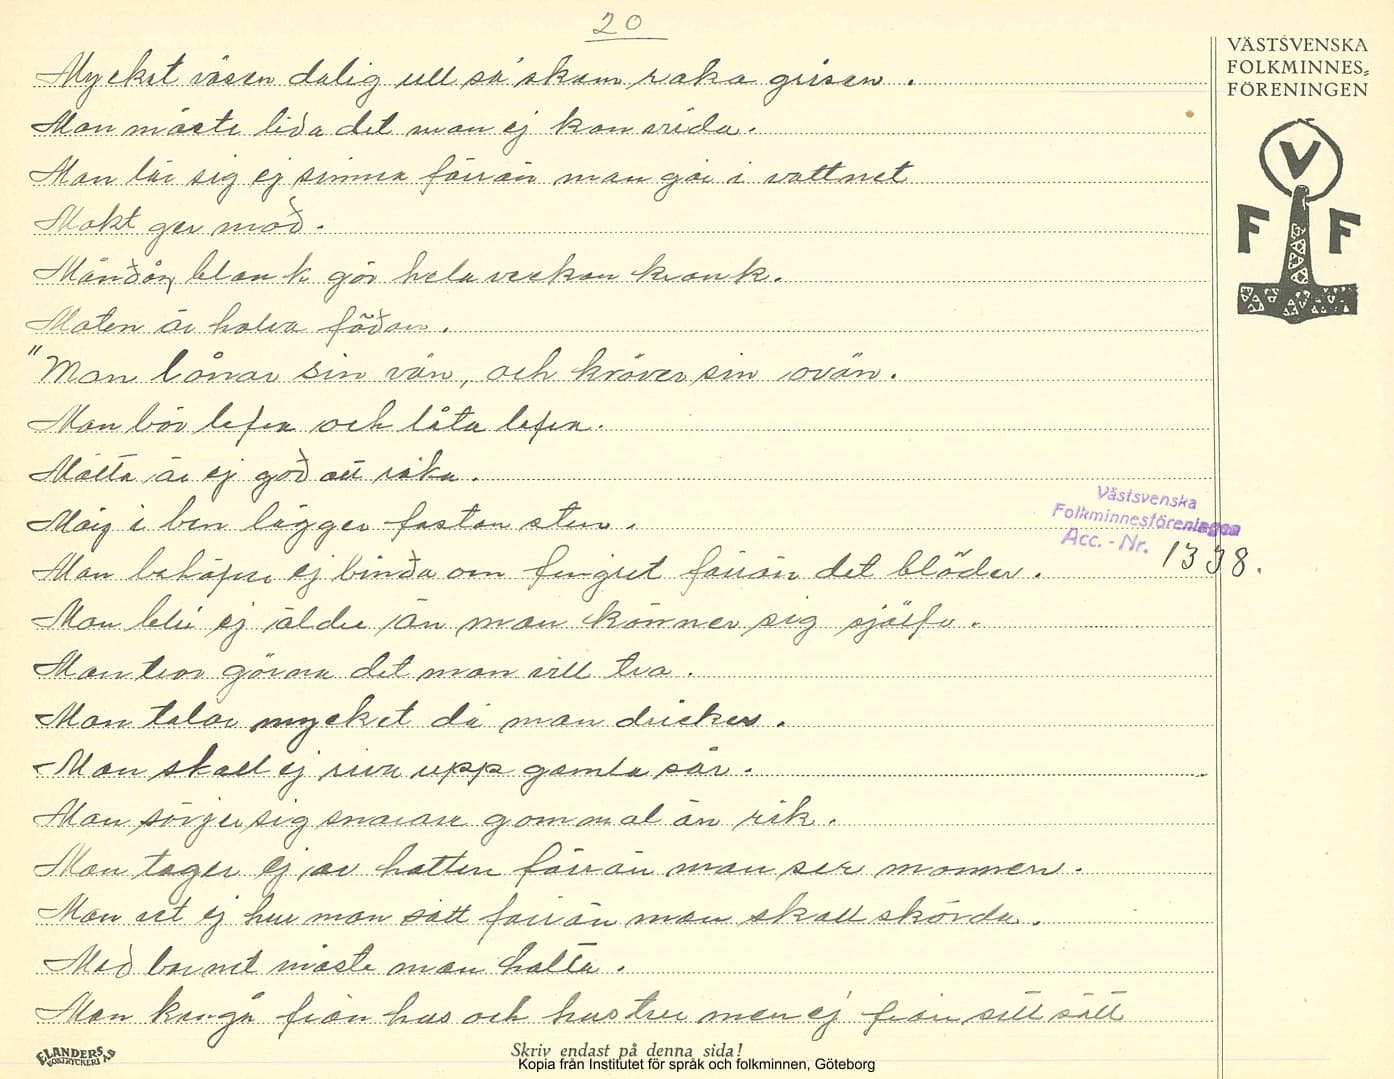 20
VÄSTSVENSKA
FOLKMINNES-
FÖRENINGEN
V
F F
Mycket väsen dålig ull sa' skam raka grisen.
Man måste lida det man ej kan vrida.
Man lär sig ej simma förrän man går i vattnet
Makt ger mod.
Måndag blank gör hela veckan krank.
Maten är halva födan.
"Man lånar sin vän, och kräver sin ovän.
Man bör lefva och låta lefva.
Mätta är ej god att
Märg i ben lägger fastan sten.
Man behöfver ej binda om fingret förrän det blöder.
Man blir ej äldre än man känner sig själfv.
Man tror gärna det man vill tro.
Man talar mycket då man dricker.
Man skall ej riva upp gamla sår.
Man sörjer sig snarare gammal än rik.
Man tager ej av hatten förrän man ser mannen.
Man vet ej hur man sått förrän man skall skörda.
Med barnet måste man halta.
Man kan gå från hus och hustru men ej från sitt sått
Västsvenska
Folkminnesföreningen
Acc. - Nr. 1338.
ELANDERS
BOKTRYCKERI A.B
Skriv endast på denna sida!
Kopia från Institutet för språk och folkminnen, Göteborg